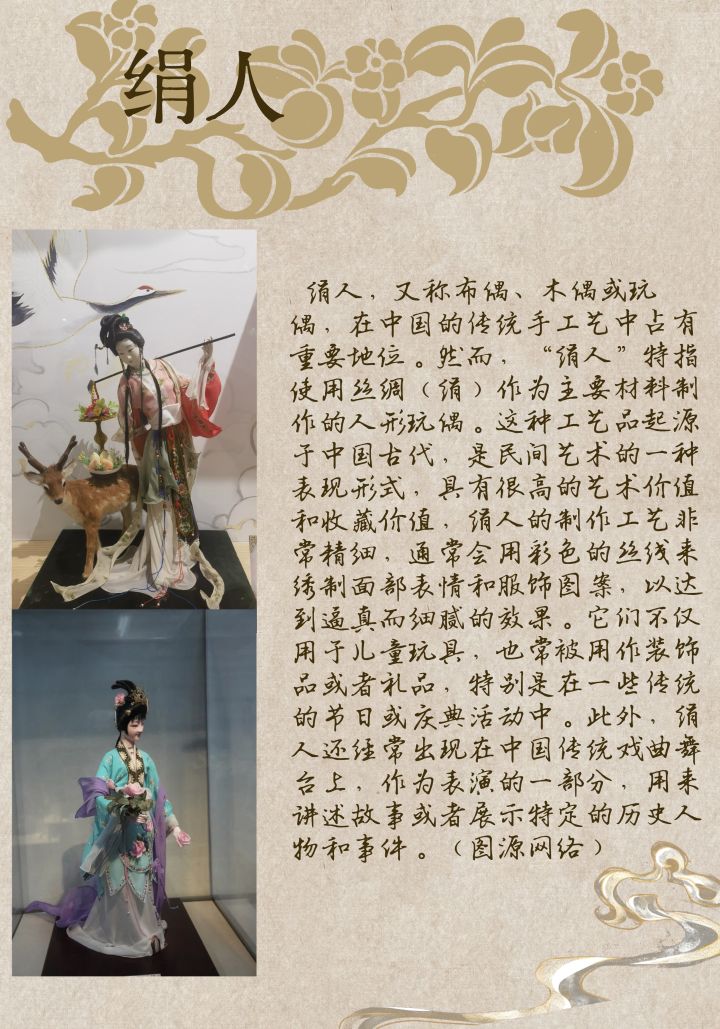 绢人
绢人，又称布偶、木偶或玩
偶，在中国的传统手工艺中占有
重要地位。然而，“绢人”特指
使用丝绸（绢）作为主要材料制
作的人形玩偶。这种工艺品起源
于中国古代，是民间艺术的一种
表现形式，具有很高的艺术价值
和收藏价值，绢人的制作工艺非
常精细，通常会用彩色的丝线来
绣制面部表情和服饰图案，以达
到逼真而细腻的效果。它们不仅
用于儿童玩具，也常被用作装饰
品或者礼品，特别是在一些传统
的节日或庆典活动中。此外，绢
人还经常出现在中国传统戏曲舞
台上，作为表演的一部分，用来
讲述故事或者展示特定的历史人
物和事件。（图源网络）